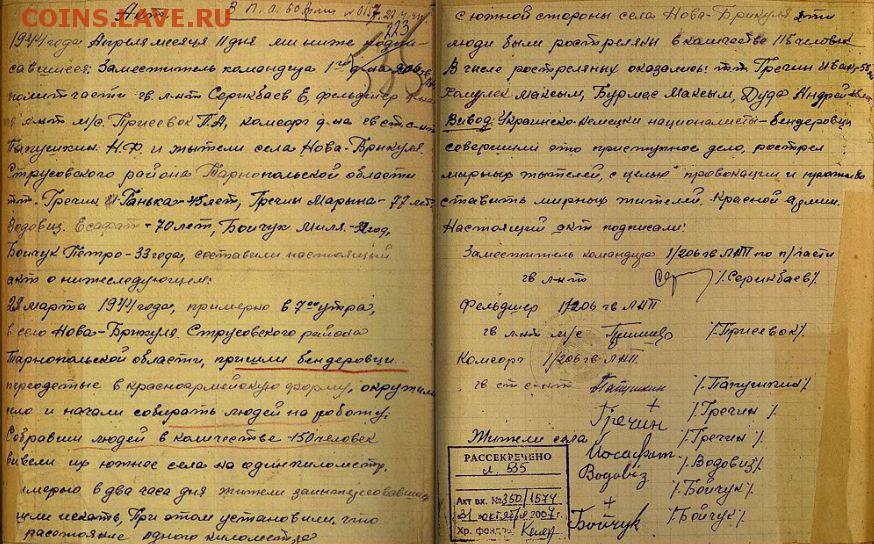 COINS.LAVE.RU
Акт. В П.о. 60 Армии
223
1944 года Апреля месяца 11 дня мы ниже подпи-
савшиеся: Заместитель командира 1го д-на
политчасти гв. л-нт Серикбаев Е, фельдшер
л-нт м/с. Присевок П.А, комсорг д-на гв ст. с-нт
Папушкин Н.Ф и жытели села Нова-Брикуля
Струсовского района Тарнопольской области
тт. Гречин Ганька-45 лет, Гречин Марына-77 лет
Водовиз. Есафат-70 лет, Бойчук Милля-
Бойчук Петро-33 года, составили настоящий
акт о нижеследующем:
28 марта 1944 года, примерно в 7 утра,
в село Нова-Брикуля Струсовского района
Тарнопольской области, пришли бендеровци
переодетые в красноармейскую форму, окружили
село и начали собирать людей на роботу.
Собравши людей в количестве-150 человек
вывели их южное села на один километр,
примерно в два часа дня жители заинтересовавшись
пошли искать, При этом установили, что
расстояние одного километра
с южной стороны села Нова-Брикуля эти
люди были ростреляны в количестве 115 человек
В числе ростреляных оказались: тт Гречин Иван-
Хомулек Максым, Бурмас Максым, Дуда Андрей
Вивод: Украинско-Немецки националисты-бендеровцы
совершили это приступное дело, рострел
мырных жытелей, с целью провокации и
ставить мирных жителей Красной армии.
Настоящий акт подписали:
Заместитель командира 1/206 гв ЛАП по п/части
гв л-нт /Серикбаев/
Фельдшер 1/206 гв ЛАП
гв л-нт м/с /Присевок/
Комсорг 1/206 гв ЛАП
гв ст с-нт Папушкин /Папушкин/
+
Гречин /Гречин/
Жители села /Гречин/
Йосафат
Водовіз /Водовиз/
+ /Бойчук/
Бойчук /Бойчук/
РАССЕКРЕЧЕНО
л. 535
Акт вх. №350/1574
31 октября 2007 г.
Хр. фондов